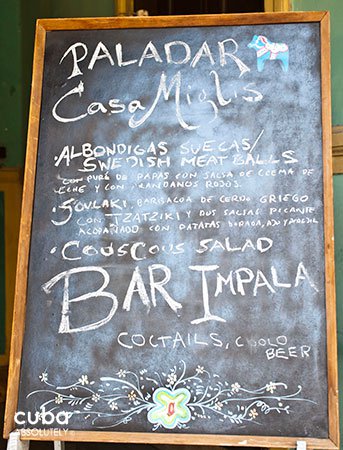 PALADAR
Casa Miglis
• ALBONDIGAS SUECAS/
SWEDISH MEAT BALLS
CON PURÉ DE PAPAS CON SALSA DE CREMA DE
LECHE Y CON ARANDANOS ROJOS.
• SOUVLAKI, BARBACOA DE CERDO GRIEGO
CON TZATZIKI Y DOS SALSAS PICANTE
ACOMPAÑADO CON PATATAS DORADA, AJO Y PEREJIL
• COUSCOUS SALAD
BAR IMPALA
COCTAILS,
BEER
cuba
ABSOLUTELY